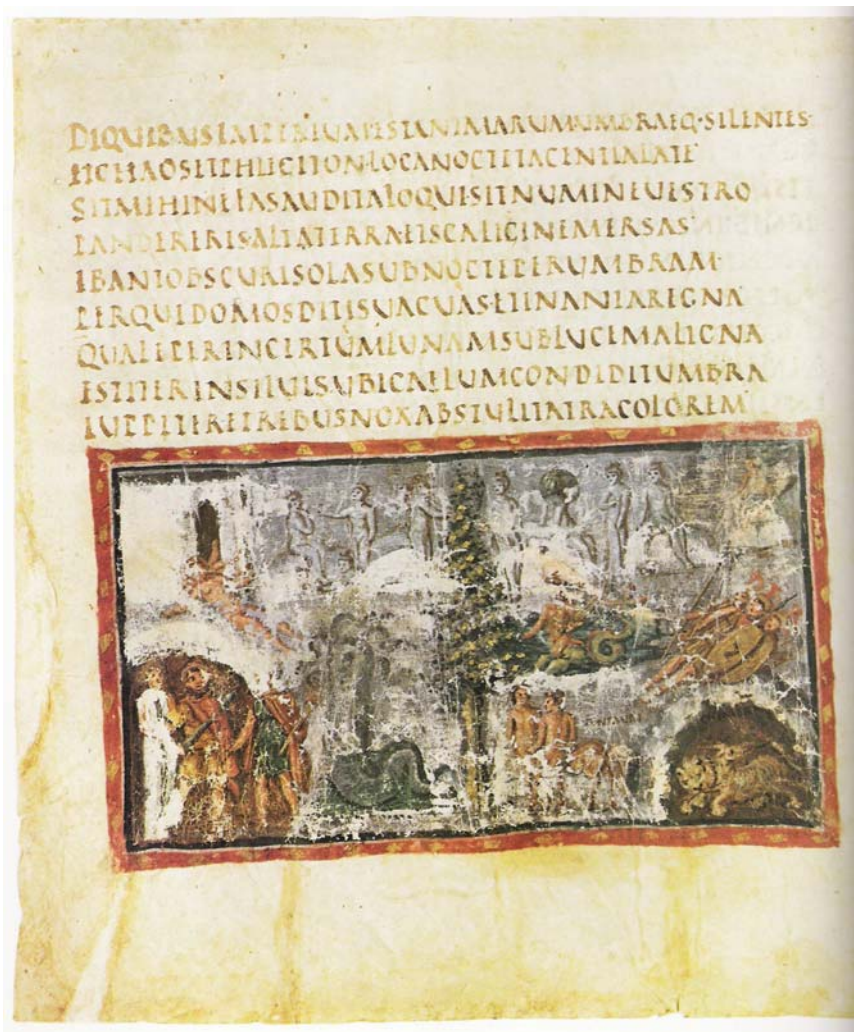 DIQUIBUSIMPERIUMESTANIMARUMUMBRAEQ·SILENTES
ETCHAOSETPHLEGETHONLOCANOCTETACENTIALATE
SITMIHIFASAUDITALOQUISITNUMINEUESTRO
PANDERERESALTATERRAETCALIGINEMERSAS
IBANTOBSCURISOLASUBNOCTEPERUMBRAM
PERQUEDOMOSDITISUACUASETINANIAREGNA
QUALEPERINCERTUMLUNAMSUBLUCEMALIGNA
ESTITERINSILUISUBICAELUMCONDIDITUMBRA
IUPPITERETREBUSNOXABSTULITATRACOLOREM